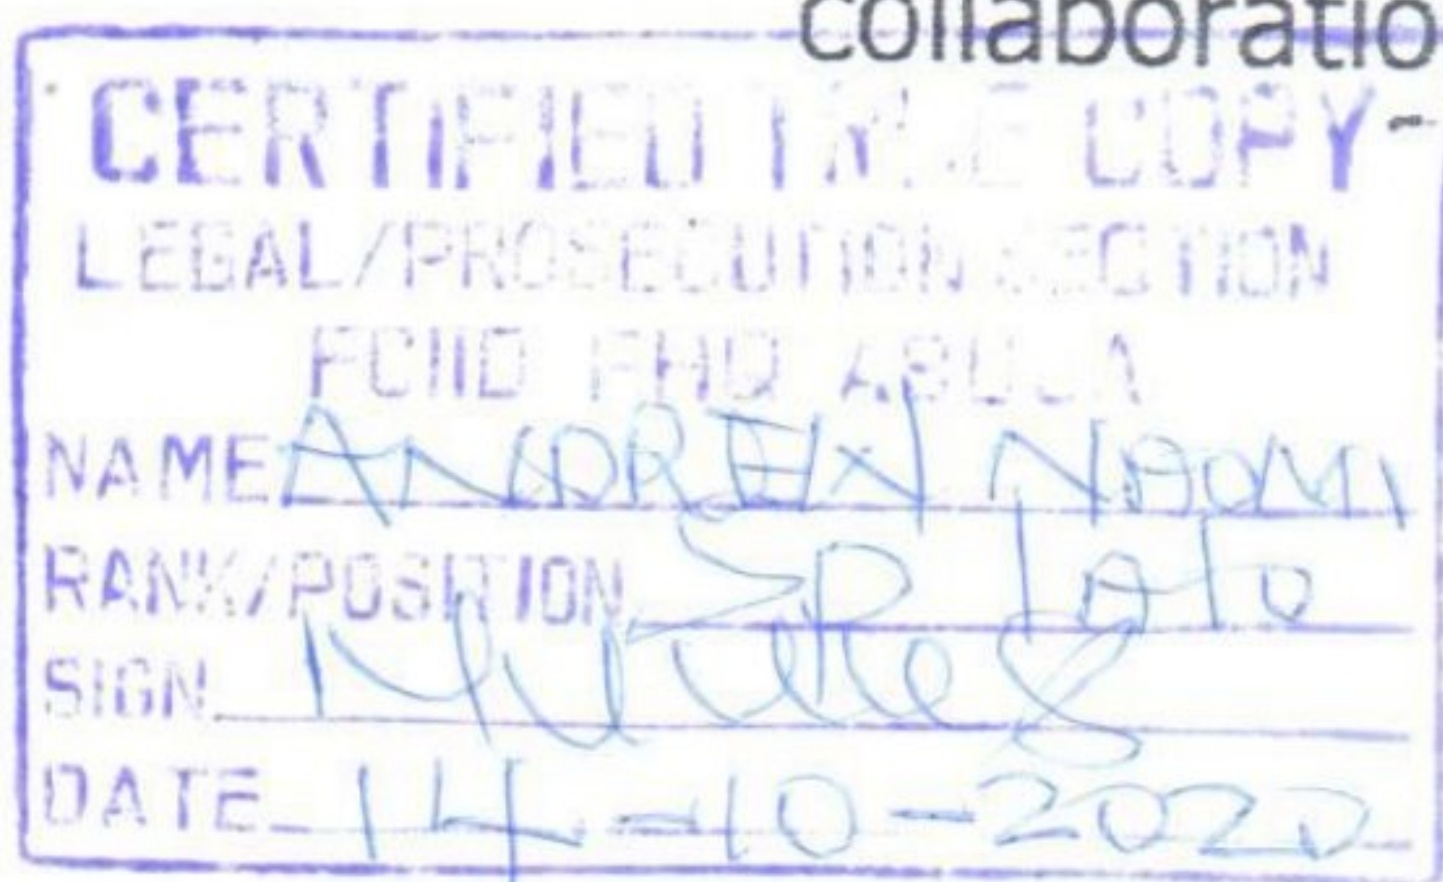 collaboratio
CERTIFIED TRUE COPY
LEGAL/PROSECUTION SECTION
FCIID FHQ ABUJA
NAME ANDREW
RANK/POSITION SP
SIGN
DATE 14-10-2020